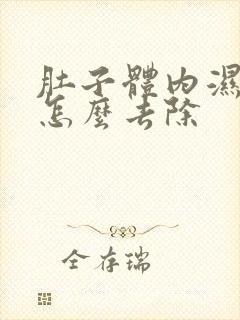 肚子體內濕
怎麼去除
全存瑞